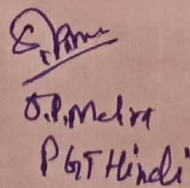 O.P. Mehra
PGT Hindi